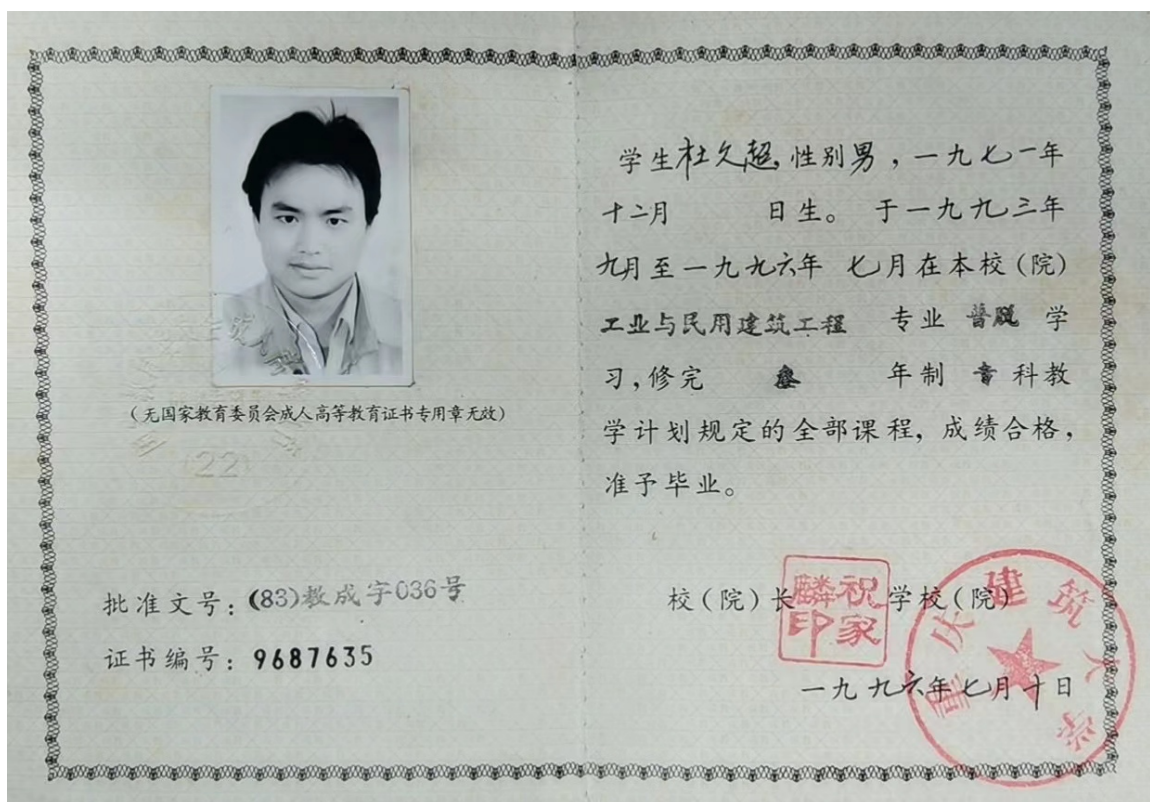 (无国家教育委员会成人高等教育证书专用章无效)
(22)
批准文号:(83)教成字036号
证书编号:9687635
学生杜久超,性别男,一九七一年
十二月 日生。于一九九三年
九月至一九九六年 七月在本校(院)
工业与民用建筑工程 专业 普脱 学
习,修完 叁 年制 专科教
学计划规定的全部课程,成绩合格,
准予毕业。
校(院)长 学校(院)
祝家麟印
重庆建筑大学
一九九六年七月十日